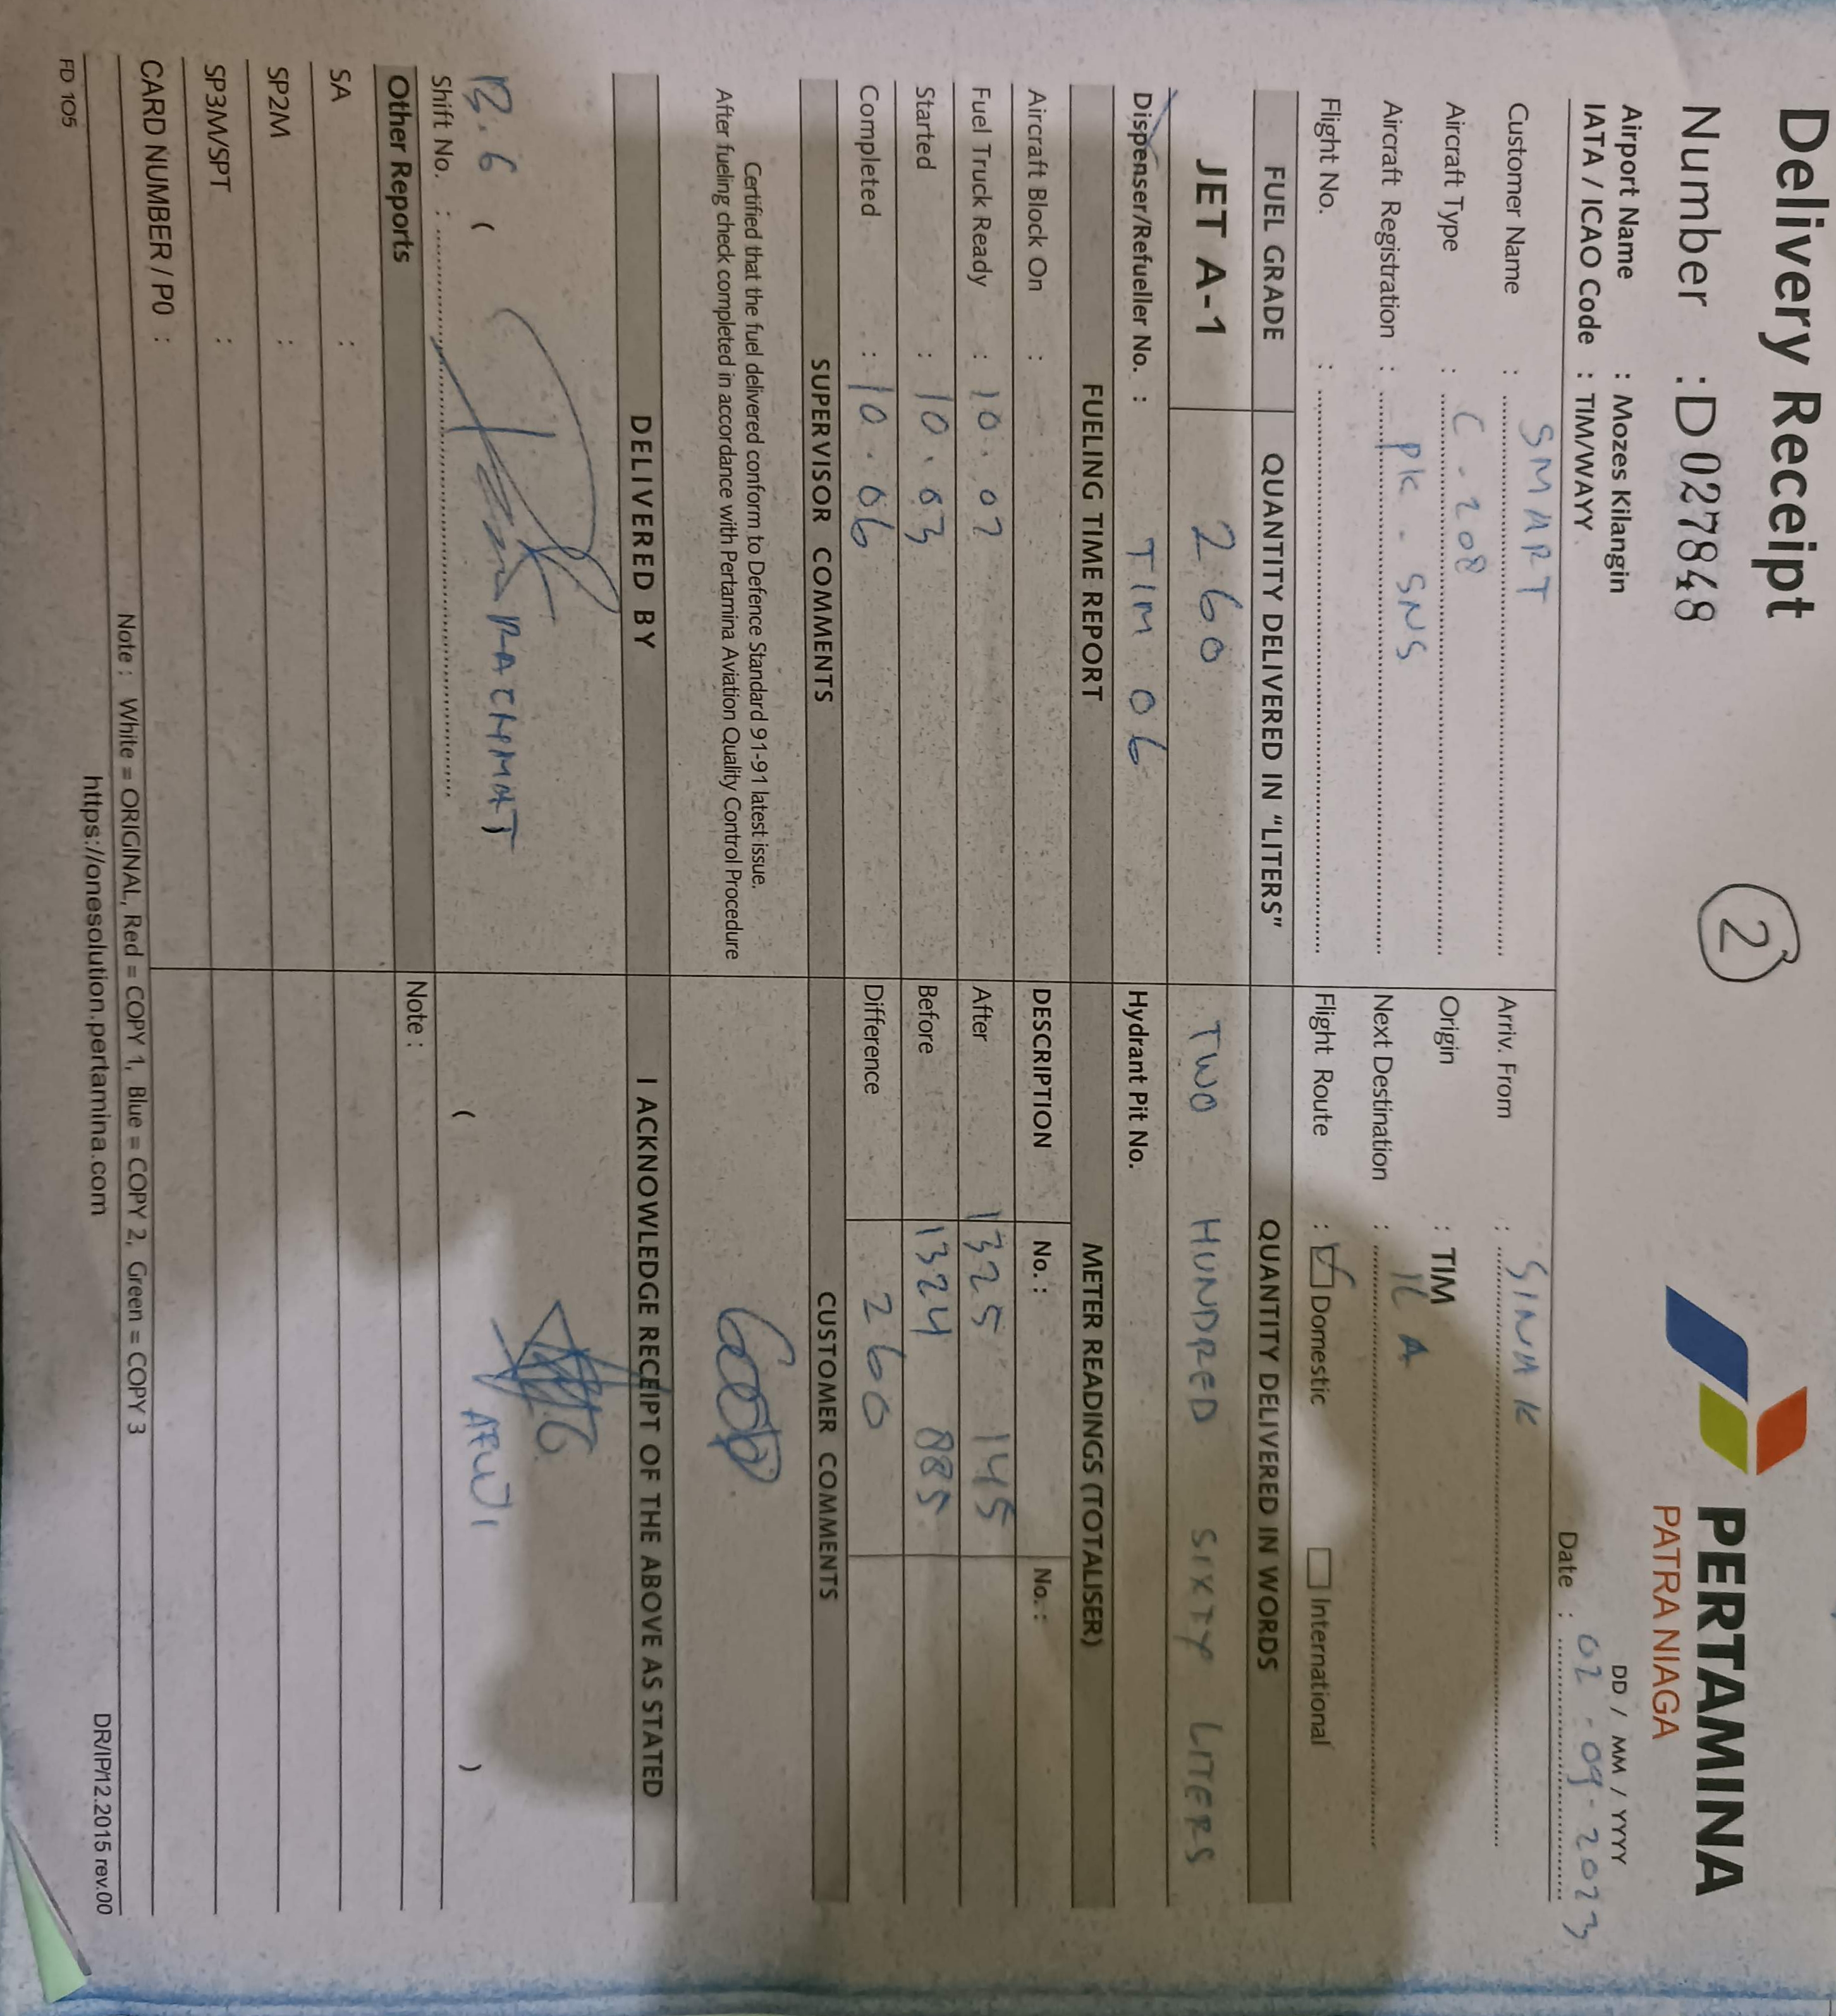 Delivery Receipt
Number : D 027848
2
PERTAMINA
PATRA NIAGA
Airport Name : Mozes Kilangin
IATA / ICAO Code : TIM/WAYY
DD / MM / YYYY
Date : 02 - 09 - 2023
Customer Name : SMART
Arriv. From : SINAK
Aircraft Type : C - 208
Origin : TIM
Aircraft Registration : PK - SNS
Next Destination :
Flight No. :
Flight Route : Domestic International
FUEL GRADE QUANTITY DELIVERED IN "LITERS" QUANTITY DELIVERED IN WORDS
JET A-1 260 TWO HUNDRED SIXTY LITERS
Dispenser/Refueller No. : TIM 06 Hydrant Pit No.
FUELING TIME REPORT METER READINGS (TOTALISER)
Aircraft Block On : DESCRIPTION No. : No. :
Fuel Truck Ready : 10.02 After 1325 145
Started : 10.03 Before 1324 885
Completed : 10.06 Difference 260
SUPERVISOR COMMENTS CUSTOMER COMMENTS
Certified that the fuel delivered conform to Defence Standard 91-91 latest issue.
After fueling check completed in accordance with Pertamina Aviation Quality Control Procedure
DELIVERED BY I ACKNOWLEDGE RECEIPT OF THE ABOVE AS STATED
( RACHMAT
( )
Shift No. :
Other Reports Note :
SA :
SP2M :
SP3M/SPT :
CARD NUMBER / P0 :
Note : White = ORIGINAL, Red = COPY 1, Blue = COPY 2, Green = COPY 3
FD 105 https://onesolution.pertamina.com DR/IP/12.2015 rev.00